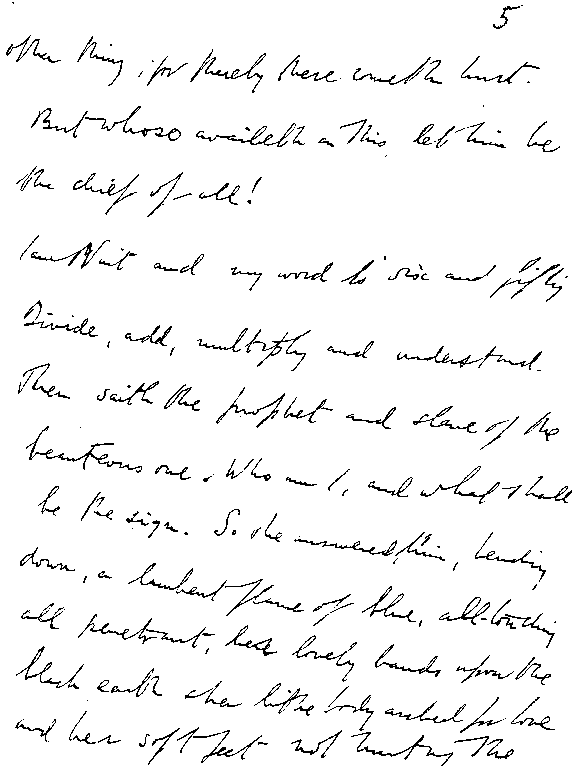 5
other thing, for thereby there cometh hurt.
But whoso availeth in this, let him be
the chief of all!
I am Nuit and my word is six and fifty
Divide, add, multiply and understand.
Then saith the prophet and slave of the
beauteous one. Who am I, and what shall
be the sign. So she answered him, bending
down, a lambent flame of blue, all-touching
all penetrant, her lovely hands upon the
black earth & her lithe body arched for love
and her soft feet not hurting the